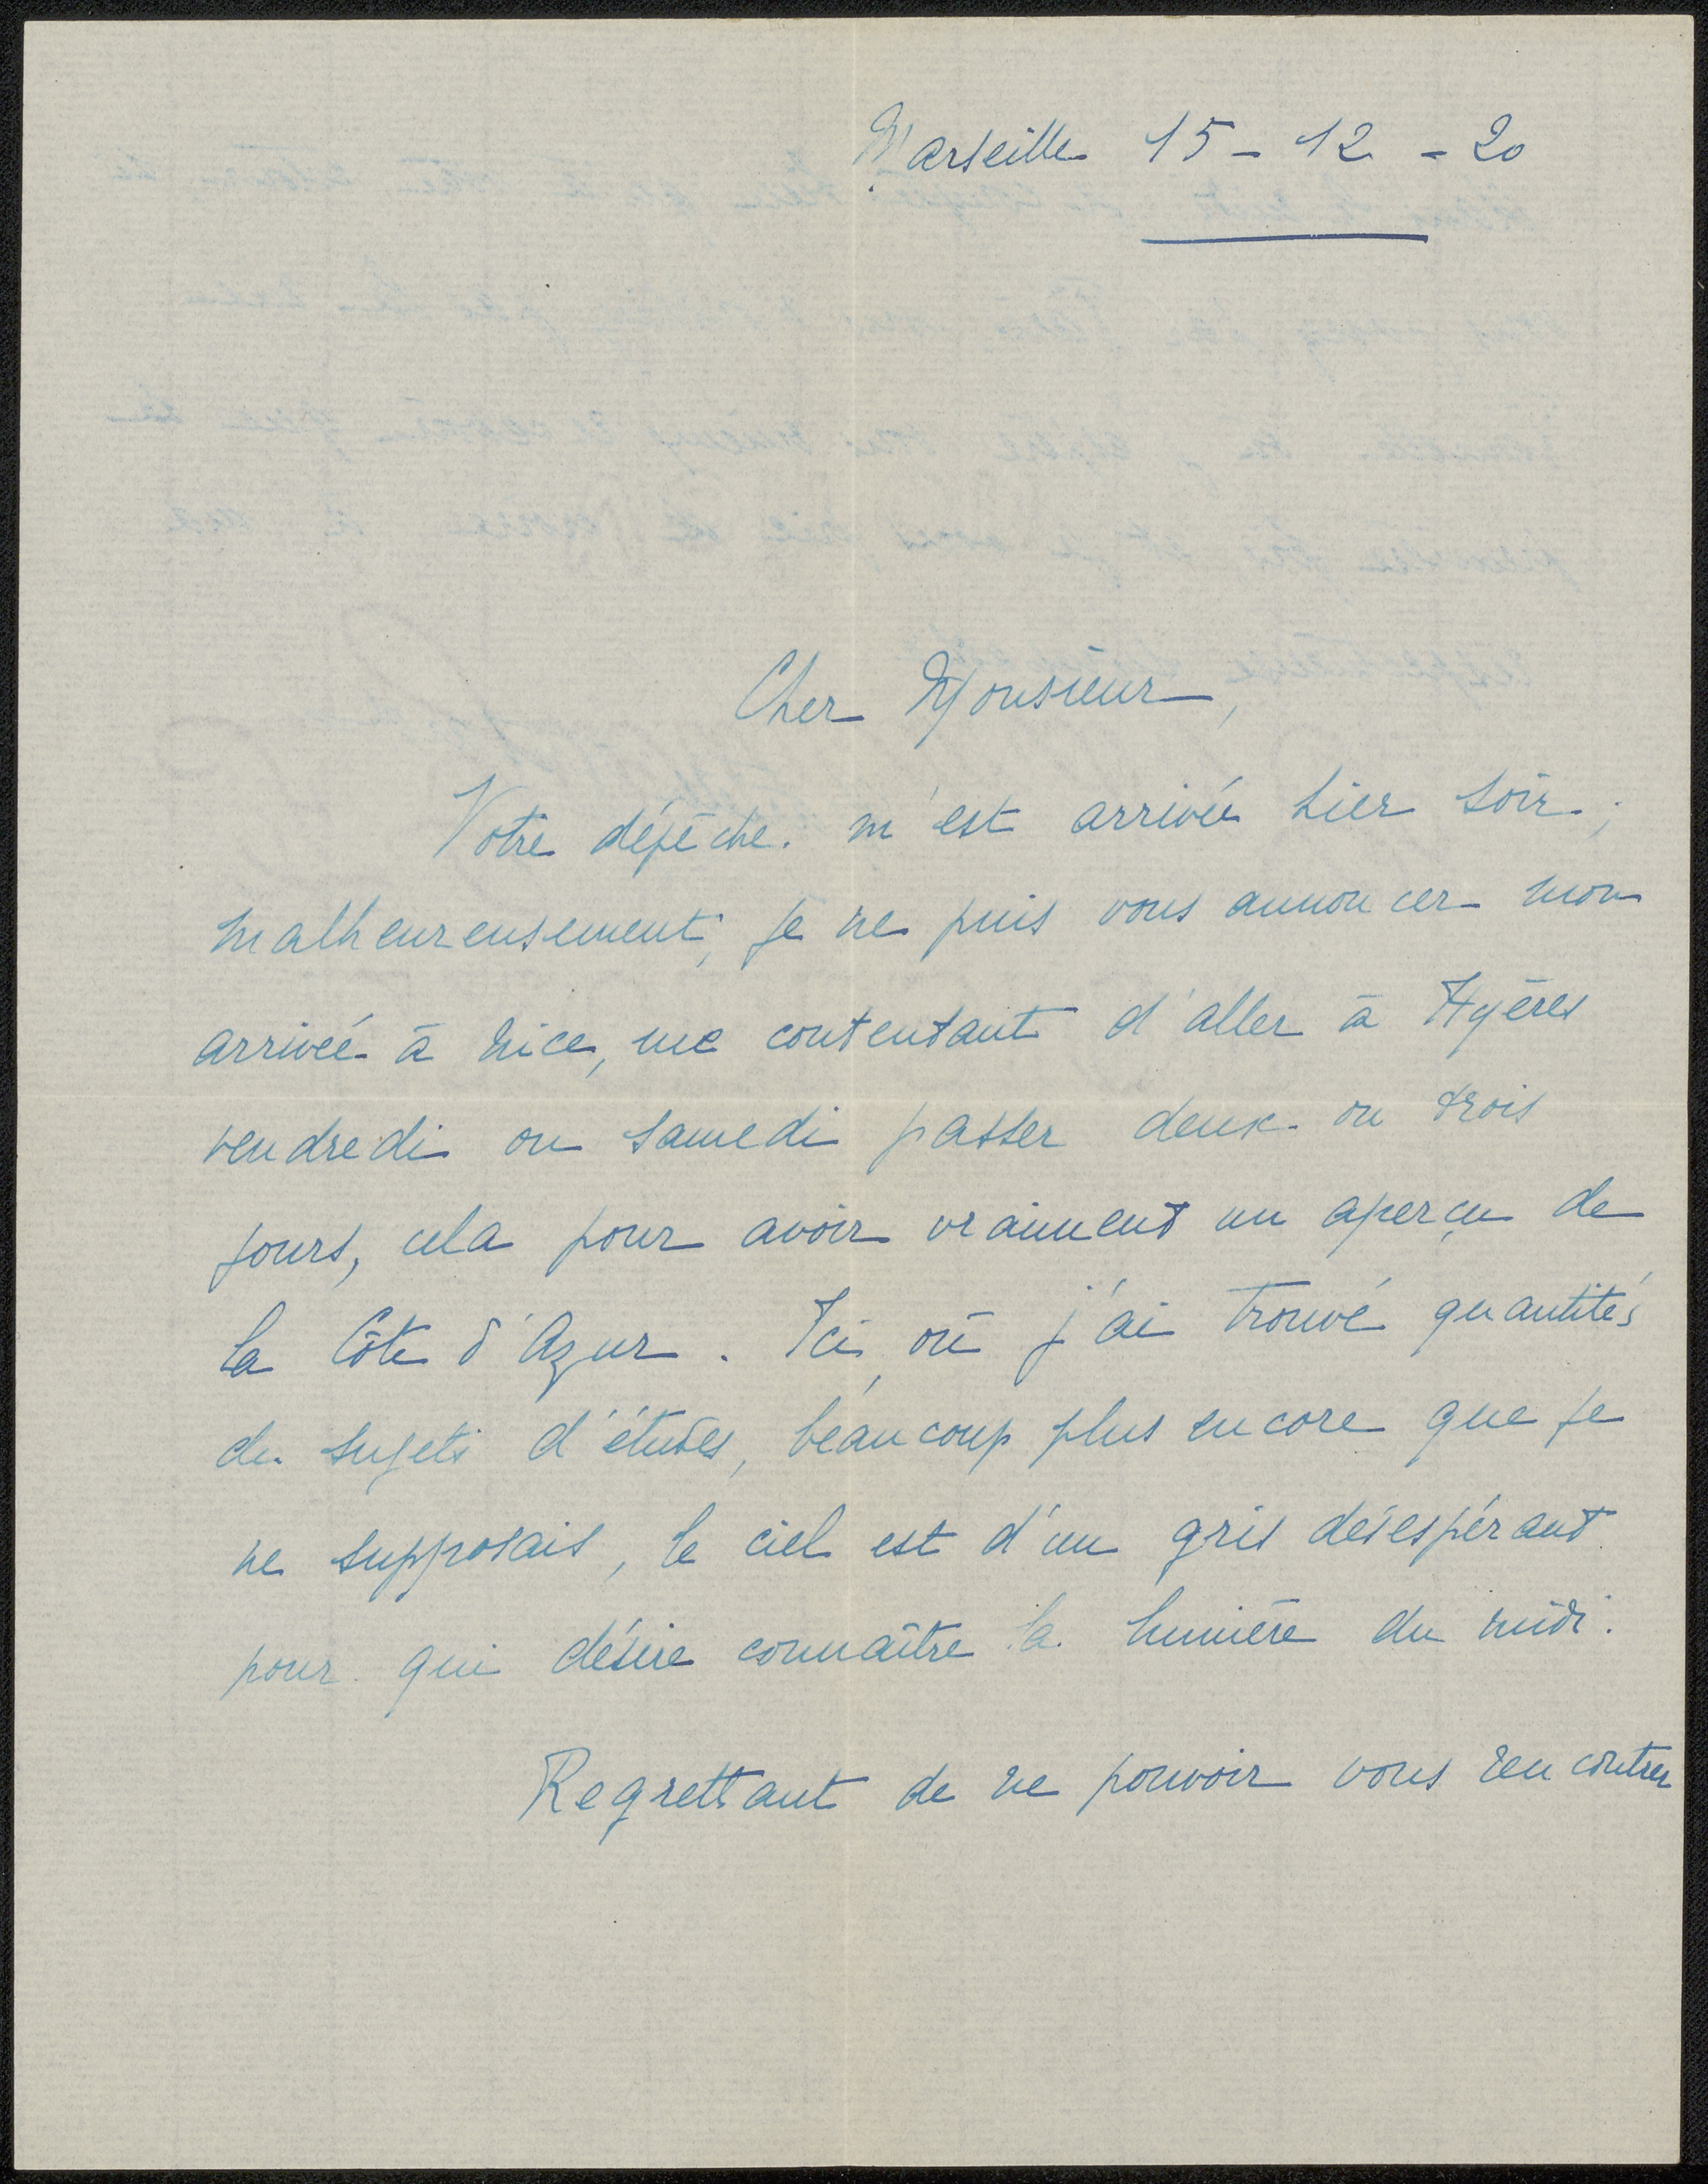 Marseille 15 - 12 - 20
Cher Monsieur,
Votre dépêche m'est arrivée hier soir ;
malheureusement, je ne puis vous annoncer mon
arrivée à Nice, me contentant d'aller à Hyères
vendredi ou samedi passer deux ou trois
jours, cela pour avoir vraiment un aperçu de
la Côte d'Azur. Ici, où j'ai trouvé quantités
de sujets d'études, beaucoup plus encore que je
ne supposais, le ciel est d'un gris désespérant
pour qui désire connaître la lumière du midi.
Regrettant de ne pouvoir vous rencontrer